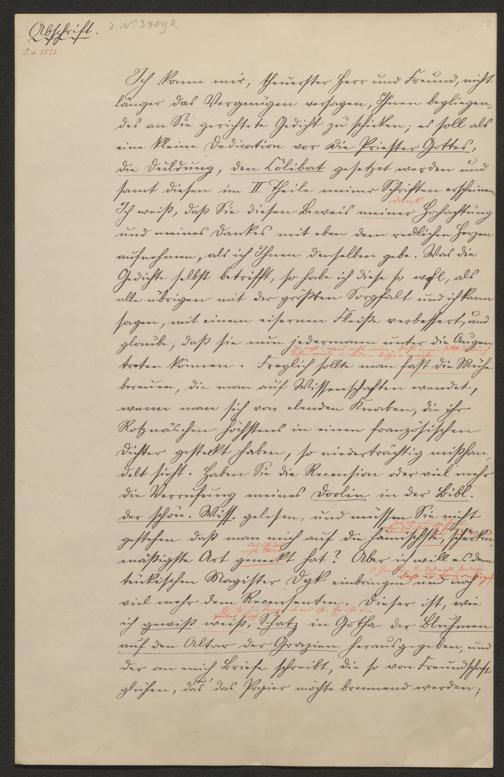 Abschrift. J. N. 34092
Ich kann mir, theuerster Herr und Freund, nicht
länger das Vergnügen versagen, Ihnen beyliegen-
des an Sie gerichtete Gedicht zu schicken; es soll als
eine kleine Dedication vor die Priester Gottes,
die Duldung, den Cölibat gesetzet werden und
samt diesen im II Theile meiner Schriften erscheinen.
Ich weiß, daß Sie diesen Beweis meiner Hochachtung
und meines Dankes mit eben dem redlichen Herzen
aufnehmen, als ich Ihnen denselben gebe. Was die
Gedichte selbst betrifft, so habe ich diese so wohl, als
alle übrigen mit der größten Sorgfalt und ich kann
sagen, mit einem eisernen Fleiße verbessert, und
glaube, daß sie nun jedermann unter die Augen
treten können. Freylich sollte man fast die Mühe
bereuen, die man auf Wissenschaften wendet,
wenn man sich von elenden Knaben, die ihr
Rotznäschen höchstens in einen französischen
Dichter gesteckt haben, so niederträchtig mißhan-
delt sieht. Haben Sie die Recension oder viel mehr
die Verrufung meines Doolin in der Bibl.
der schön. Wiss. gelesen, und müssen Sie nicht
gestehen daß man mich auf die hämischste
mäßigste Art geneckt hat? Aber ich will es dem
tückischen Magister Dyk einbringen und noch
viel mehr dem Recensenten. Dieser ist, wie
ich gewiß weiß, Schatz in Gotha der Blühmen
auf den Altar der Grazien herausgegeben, und
der an mich Briefe schreibt, die so von Freundschaft
glühen, das das Papier möchte brennend werden;